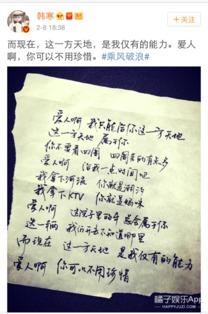 韩寒
2-8 18:38
而现在,这一方天地,是我仅有的能力。爱人
啊,你可以不用珍惜。#乘风破浪#
爱人啊 我只能给你这一方天地
这一方天地 属于你
你不要看四周 四周
爱人啊 给我一点时间吧
我拿下河流 你就是潮汐
我拿下KTV 你就是妈咪
爱人啊 这院子里的车总会属于你
这一辆
而现在 这一方天地 是我仅有的能力
爱人啊 你可以不用珍惜
橘子娱乐App
HAPPYJUZI.COM